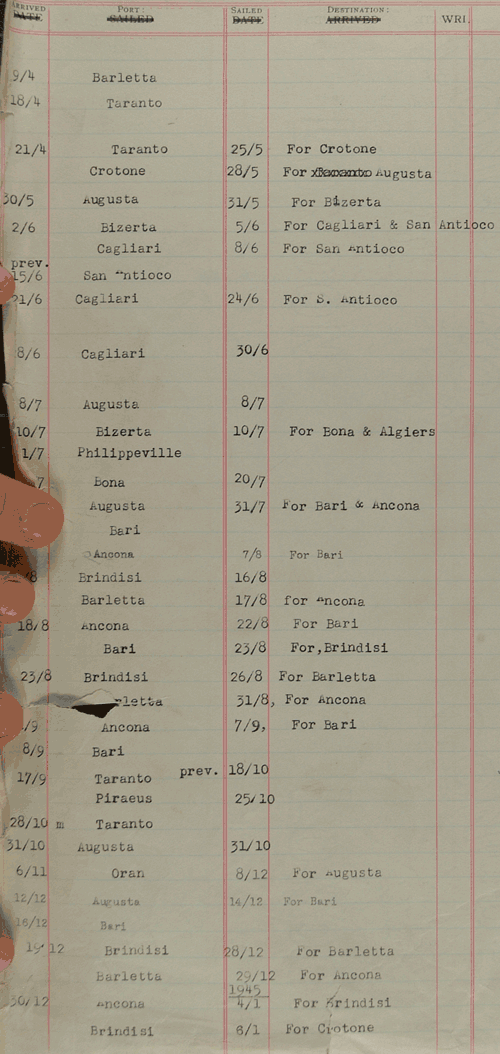 ARRIVED PORT: SAILED DESTINATION:
DATE SAILED DATE ARRIVED WRI.
9/4 Barletta
18/4 Taranto
21/4 Taranto 25/5 For Crotone
Crotone 28/5 For xTaranto Augusta
30/5 Augusta 31/5 For Bizerta
2/6 Bizerta 5/6 For Cagliari & San Antioco
Cagliari 8/6 For San Antioco
prev.
15/6 San Antioco
21/6 Cagliari 24/6 For S. Antioco
8/6 Cagliari 30/6
8/7 Augusta 8/7
10/7 Bizerta 10/7 For Bona & Algiers
1/7 Philippeville
7 Bona 20/7
Augusta 31/7 For Bari & Ancona
Bari
Ancona 7/8 For Bari
/8 Brindisi 16/8
Barletta 17/8 for Ancona
18/8 Ancona 22/8 For Bari
Bari 23/8 For,Brindisi
23/8 Brindisi 26/8 For Barletta
rletta 31/8, For Ancona
/9 Ancona 7/9, For Bari
8/9 Bari
17/9 Taranto prev. 18/10
Piraeus 25/10
28/10 m Taranto
31/10 Augusta 31/10
6/11 Oran 8/12 For Augusta
12/12 Augusta 14/12 For Bari
16/12 Bari
19/12 Brindisi 28/12 For Barletta
Barletta 29/12 For Ancona
1945
30/12 Ancona 4/1 For Brindisi
Brindisi 6/1 For Crotone